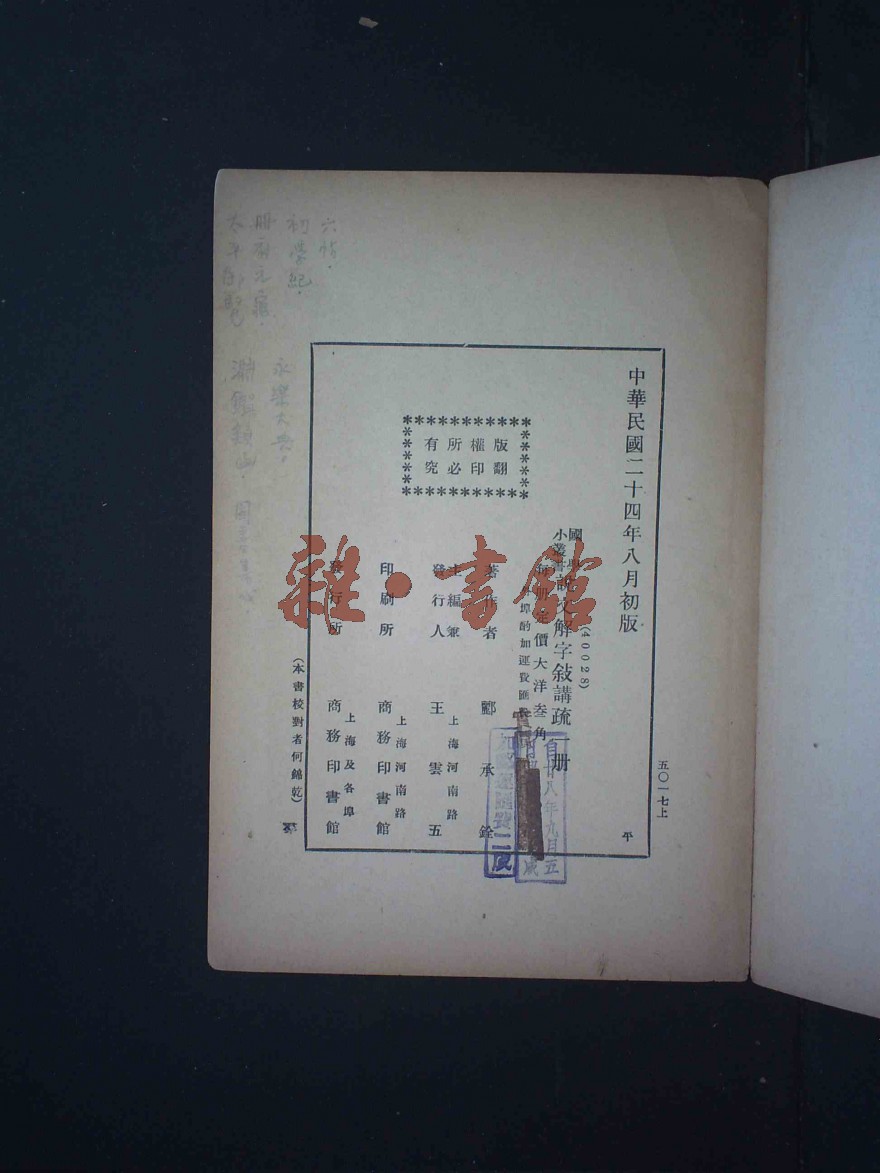 中華民國二十四年八月初版
五〇一七上
平
(40028)
國學
小叢書
說文解字敍講疏 一册
每册定價大洋叁角
埠酌加運費匯
版權所有
翻印必究
著作者 酈承銓
主編兼
發行人 王雲五
上海河南路
印刷所 商務印書館
上海河南路
發行所 商務印書館
上海及各埠
(本書校對者何錦乾)
自廿八年九月五
六帖.
初學紀.
册府元龜.
太平御覽
永樂大典,
淵鑑
雜·書館